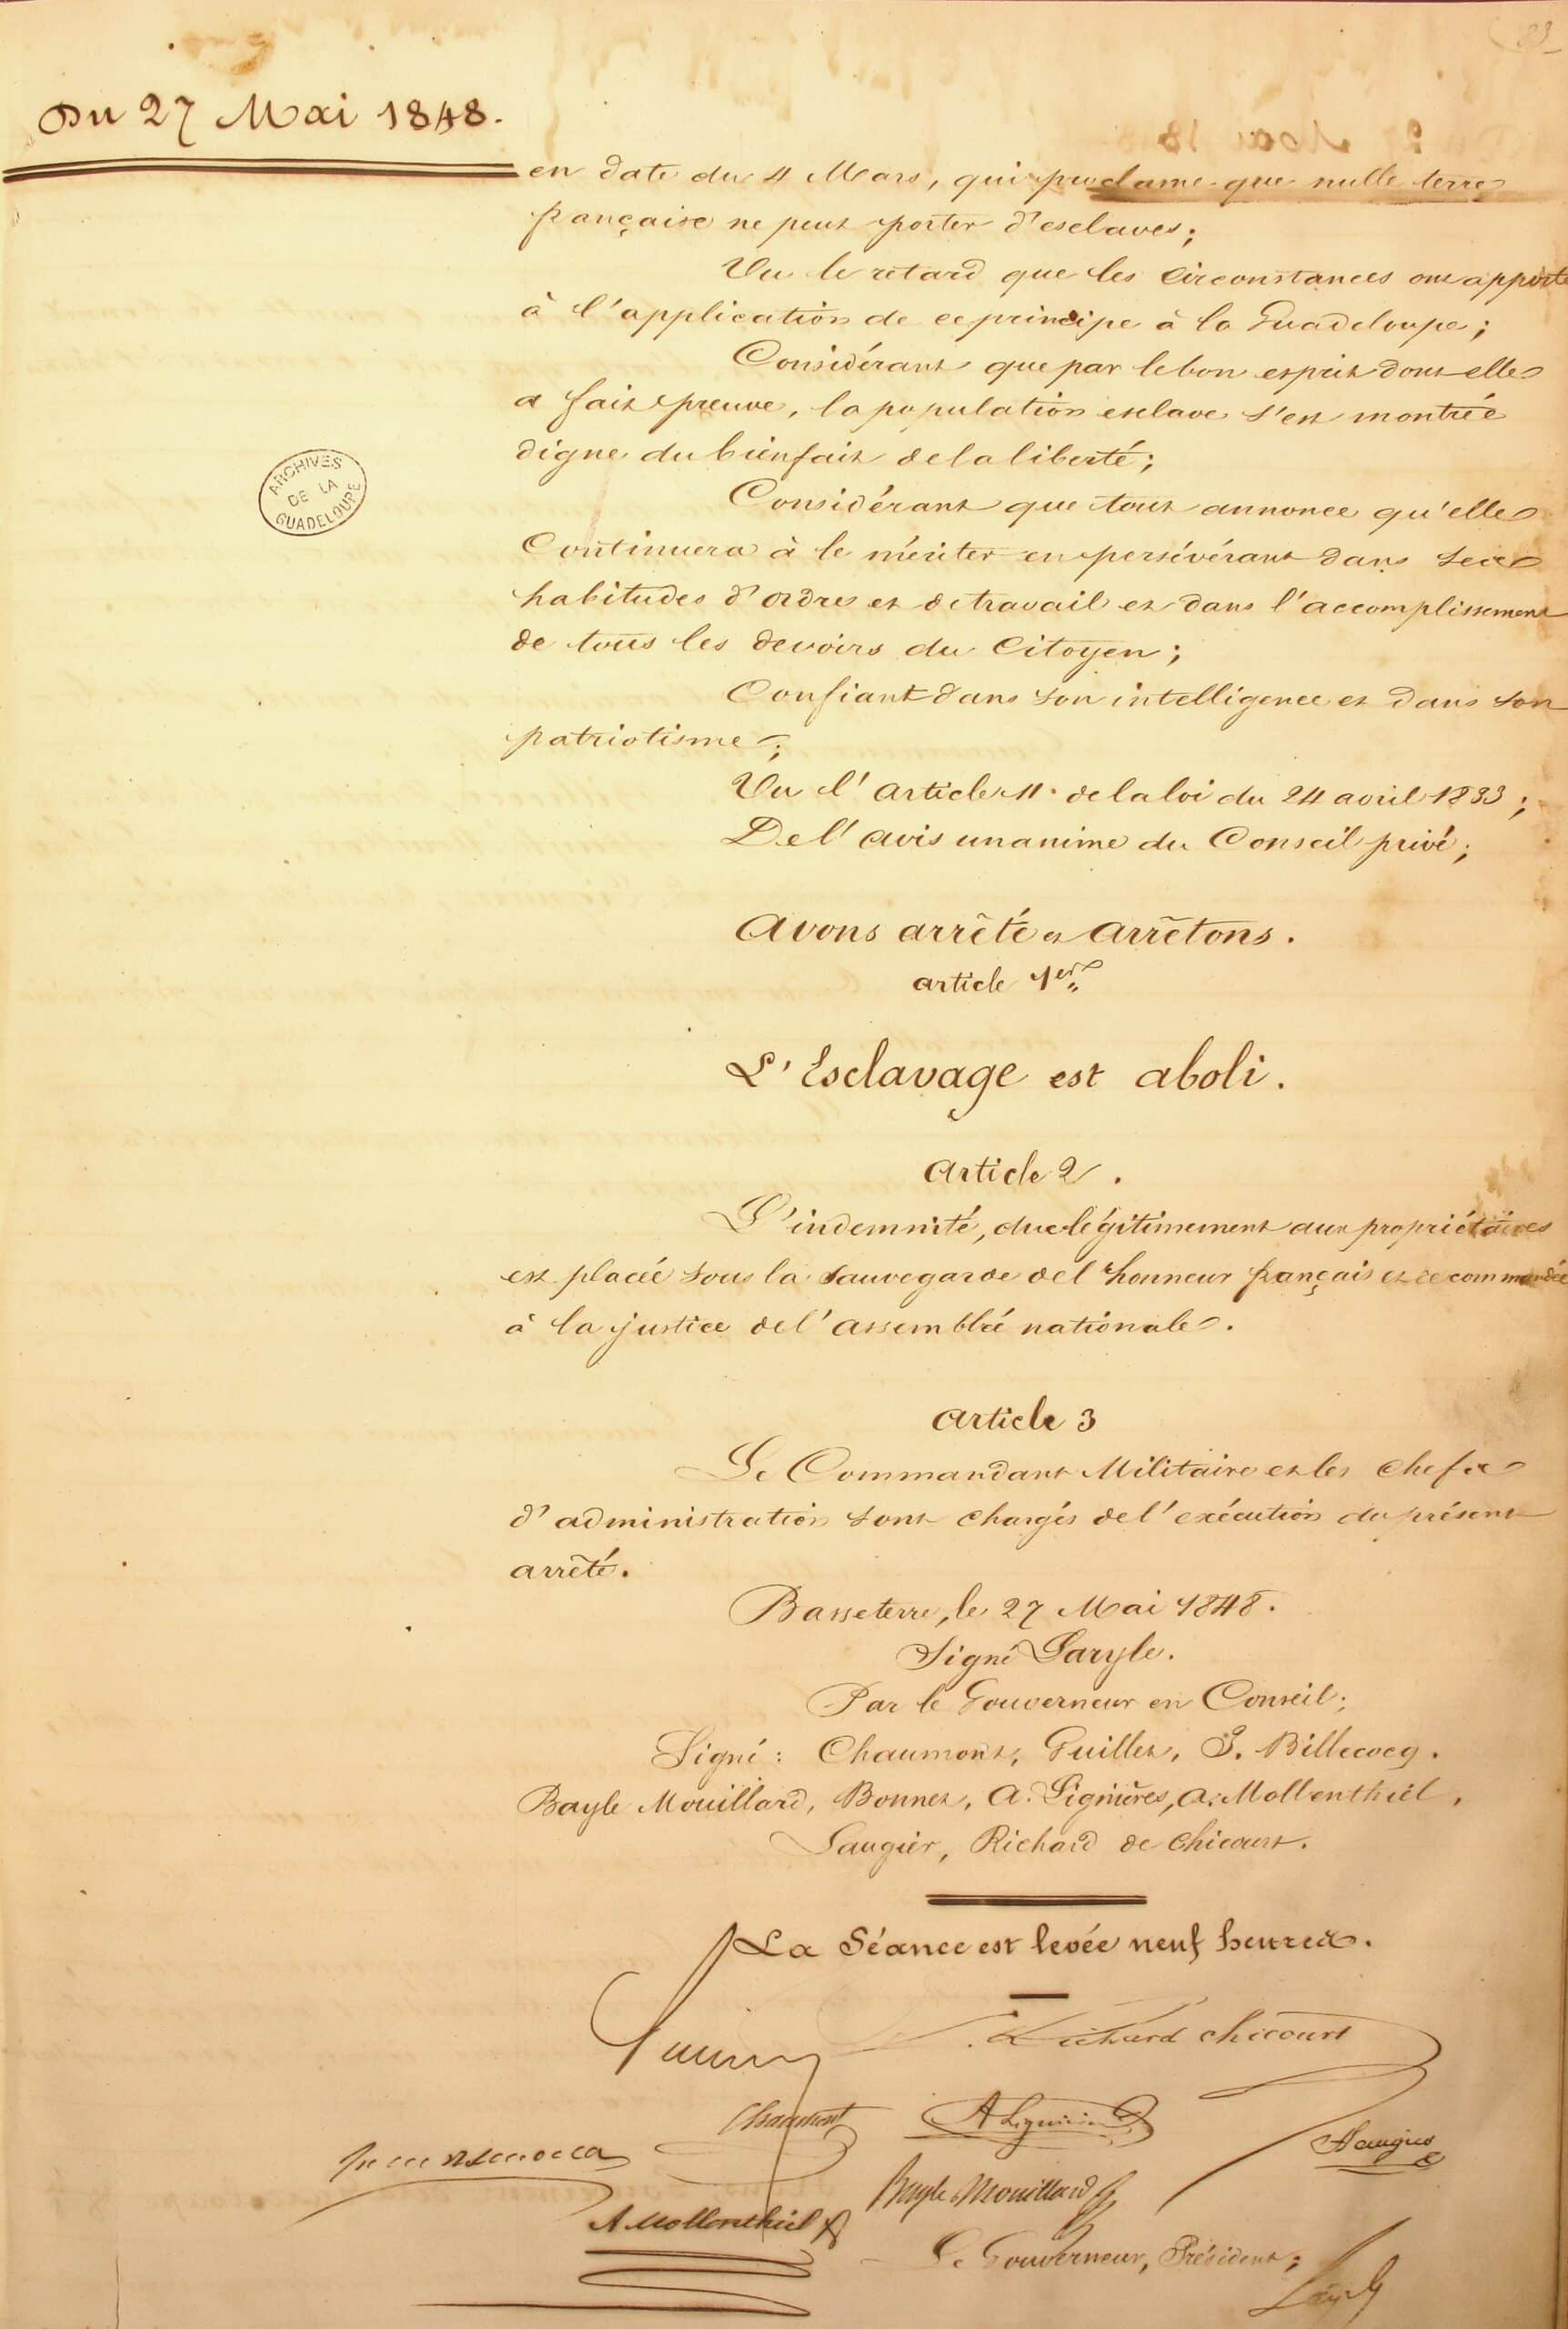 83
Du 27 Mai 1848.
en date du 4 Mars, qui proclame que nulle terre
française ne peut porter d'esclaves;
Vu le retard que les circonstances ont apporté
à l'application de ce principe à la Guadeloupe;
Considérant que par le bon esprit dont elle
a fait preuve, la population esclave s'est montrée
digne du bienfait de la liberté;
Considérant que tout annonce qu'elle
Continuera à le mériter en persévérant dans ses
habitudes d'ordre et de travail et dans l'accomplissement
de tous les devoirs du Citoyen;
Confiant dans son intelligence et dans son
patriotisme;
Vu l'article 11. de la loi du 24 avril 1833;
De l'avis unanime du Conseil privé;
ARCHIVES
DE LA
GUADELOUPE
Avons arrêté et arrêtons.
article 1er
L'Esclavage est aboli.
Article 2.
L'indemnité, due légitimement aux propriétaires
est placée sous la sauvegarde de l'honneur français et recommandée
à la justice de l'assemblée nationale.
Article 3
Le Commandant Militaire et les chefs
d'administration sont chargés de l'exécution du présent
arrêté.
Basseterre, le 27 Mai 1848.
Signé Layrle.
Par le Gouverneur en Conseil;
Signé: Chaumont, Guillet, J. Billecocq.
Bayle Mouillard, Bonnet, A. Lignières, A. Mollenthiel,
Laugier, Richard de Chicourt.
La Séance est levée neuf heures.
Richard Chicourt
Chaumont A Lignières
Laugier
Bayle Mouillard
A Mollenthiel
Le Gouverneur, Président;
Layrle